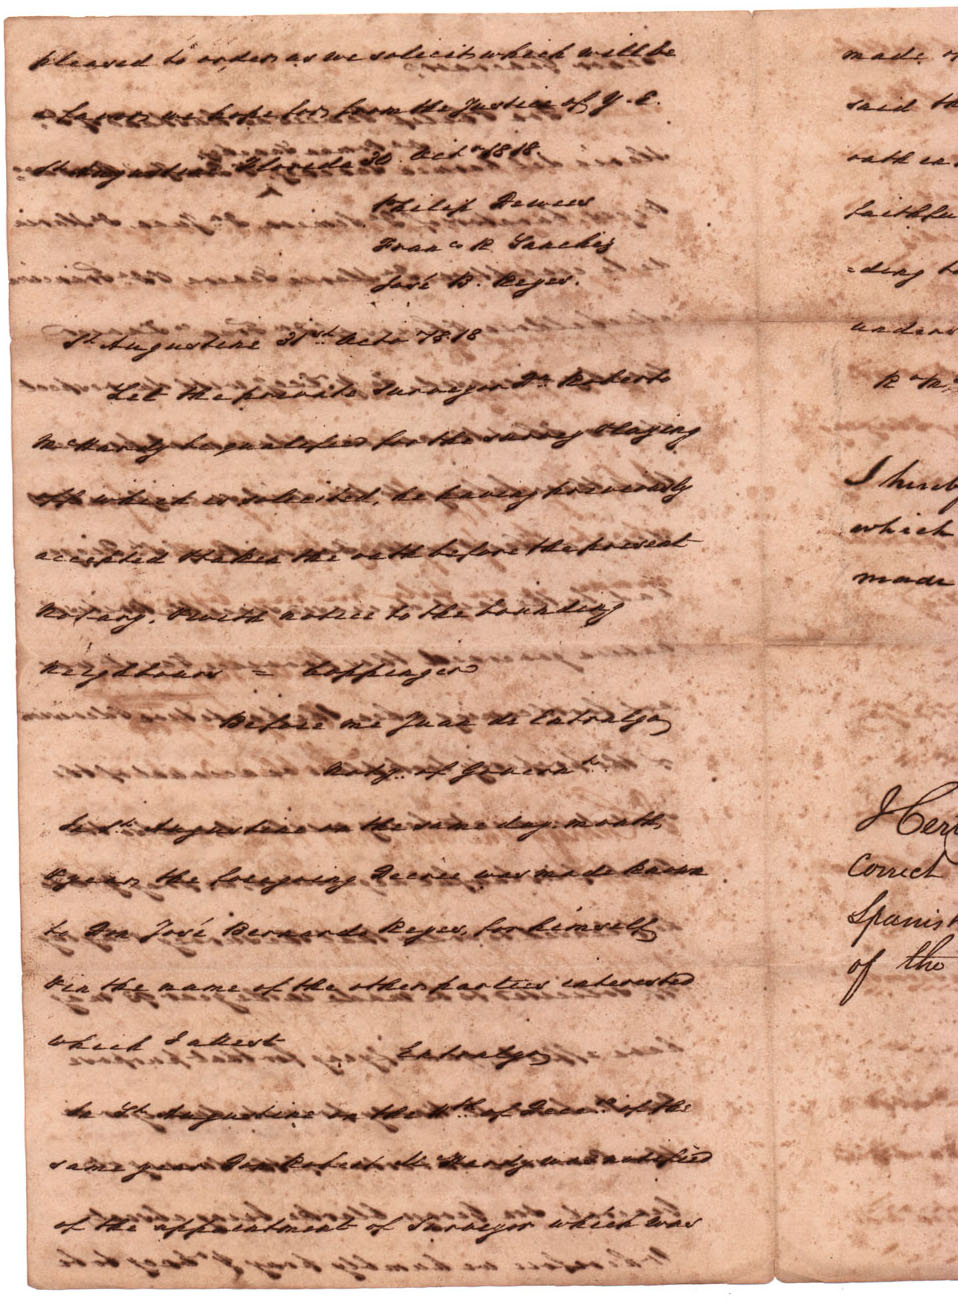 pleased to order as we solicit which will be
a favor we hope for from the Justice of Y. E.
St Augustine Florida 30 Octr 1818
Philip Dewees
Franco R. Sanchez
José B. Reyes.
St Augustine 31st Octr 1818
Let the private Surveyor Dn Roberto
McHardy be qualified for the survey & laying
off which is solicited, he having previously
accepted & taken the oath before the present
Notary. & with notice to the bounding
Neighbours = Coppinger
Before me Juan de Entralgo
Noty. of Governt
In St Augustine on the same day, month,
& year, the foregoing Decree was made known
to Don José Bernardo Reyes, for himself
& in the name of the other parties interested
which I attest Entralgo
In St Augustine on the of Decr of the
same year Don Robert McHardy was notified
of the appointment of Surveyor which was
made
said
oath
faithfu
-ding
unders
I hereby
which
made
I Cer
Correct
Spanish
of the